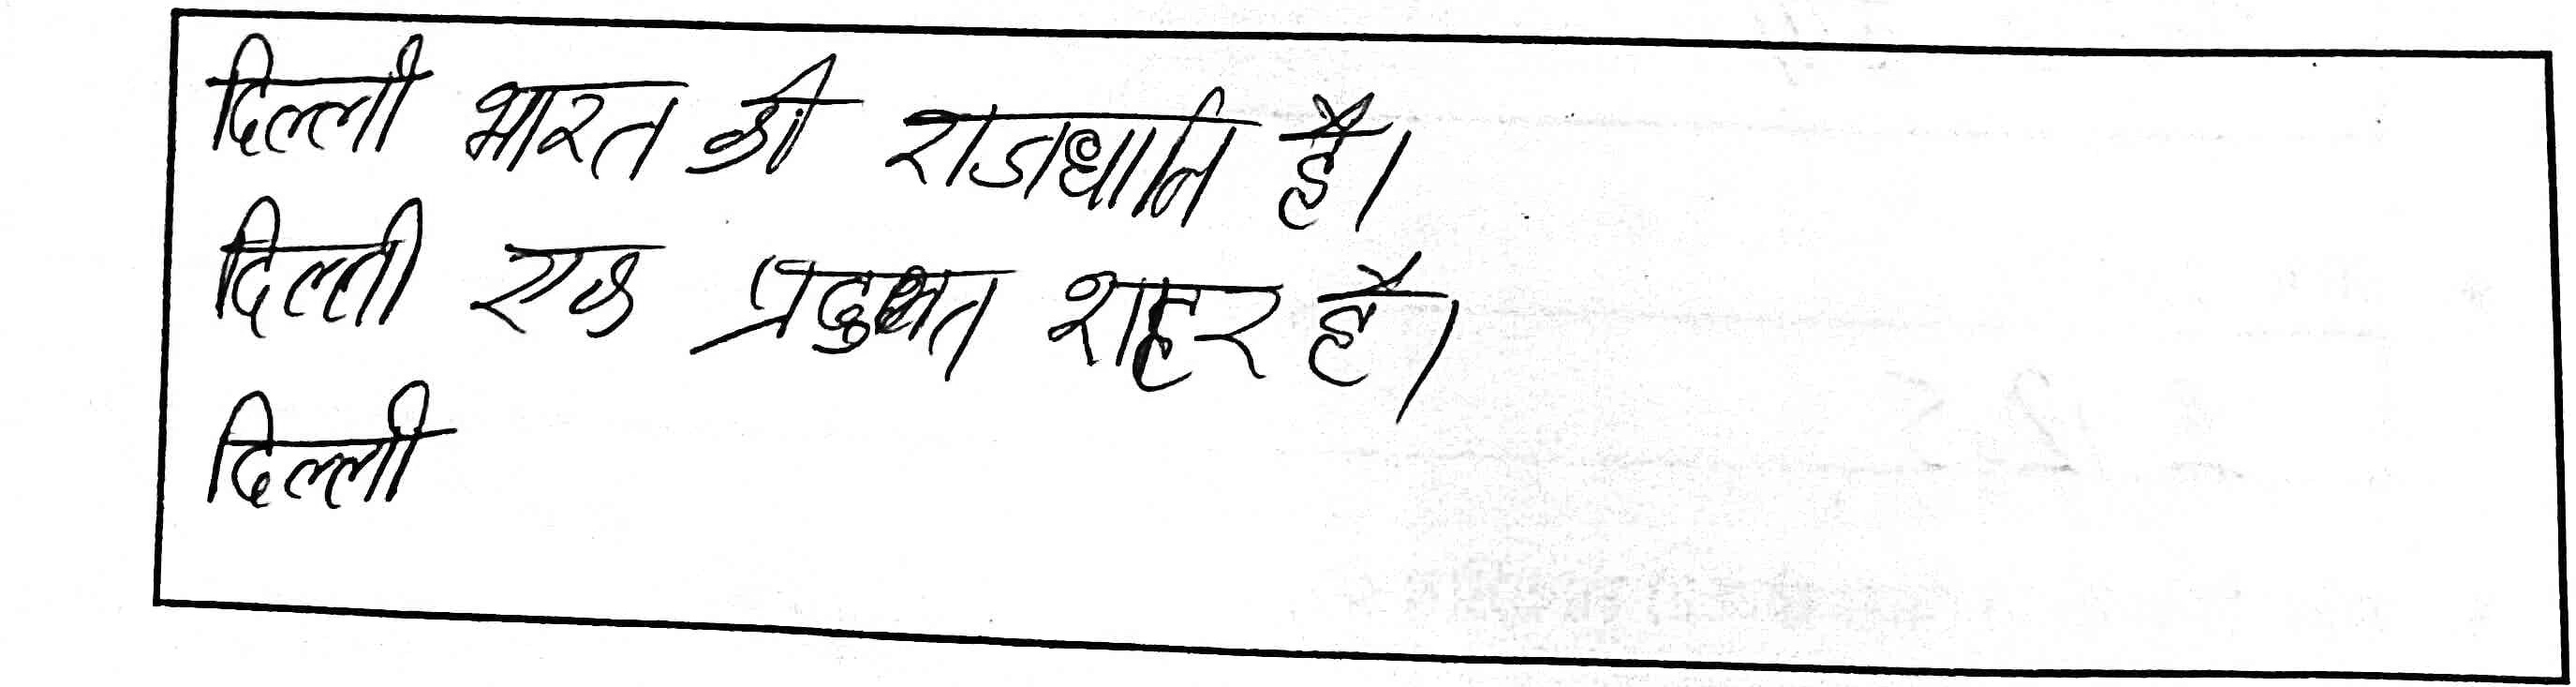 दिल्ली भारत की राजधानि है।
दिल्ली एक शहर है।
दिल्ली